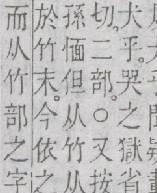 犬乎。哭之獄省
切。二部。○又按
孫愐但从竹从
於竹末。今依之
而从竹部之字